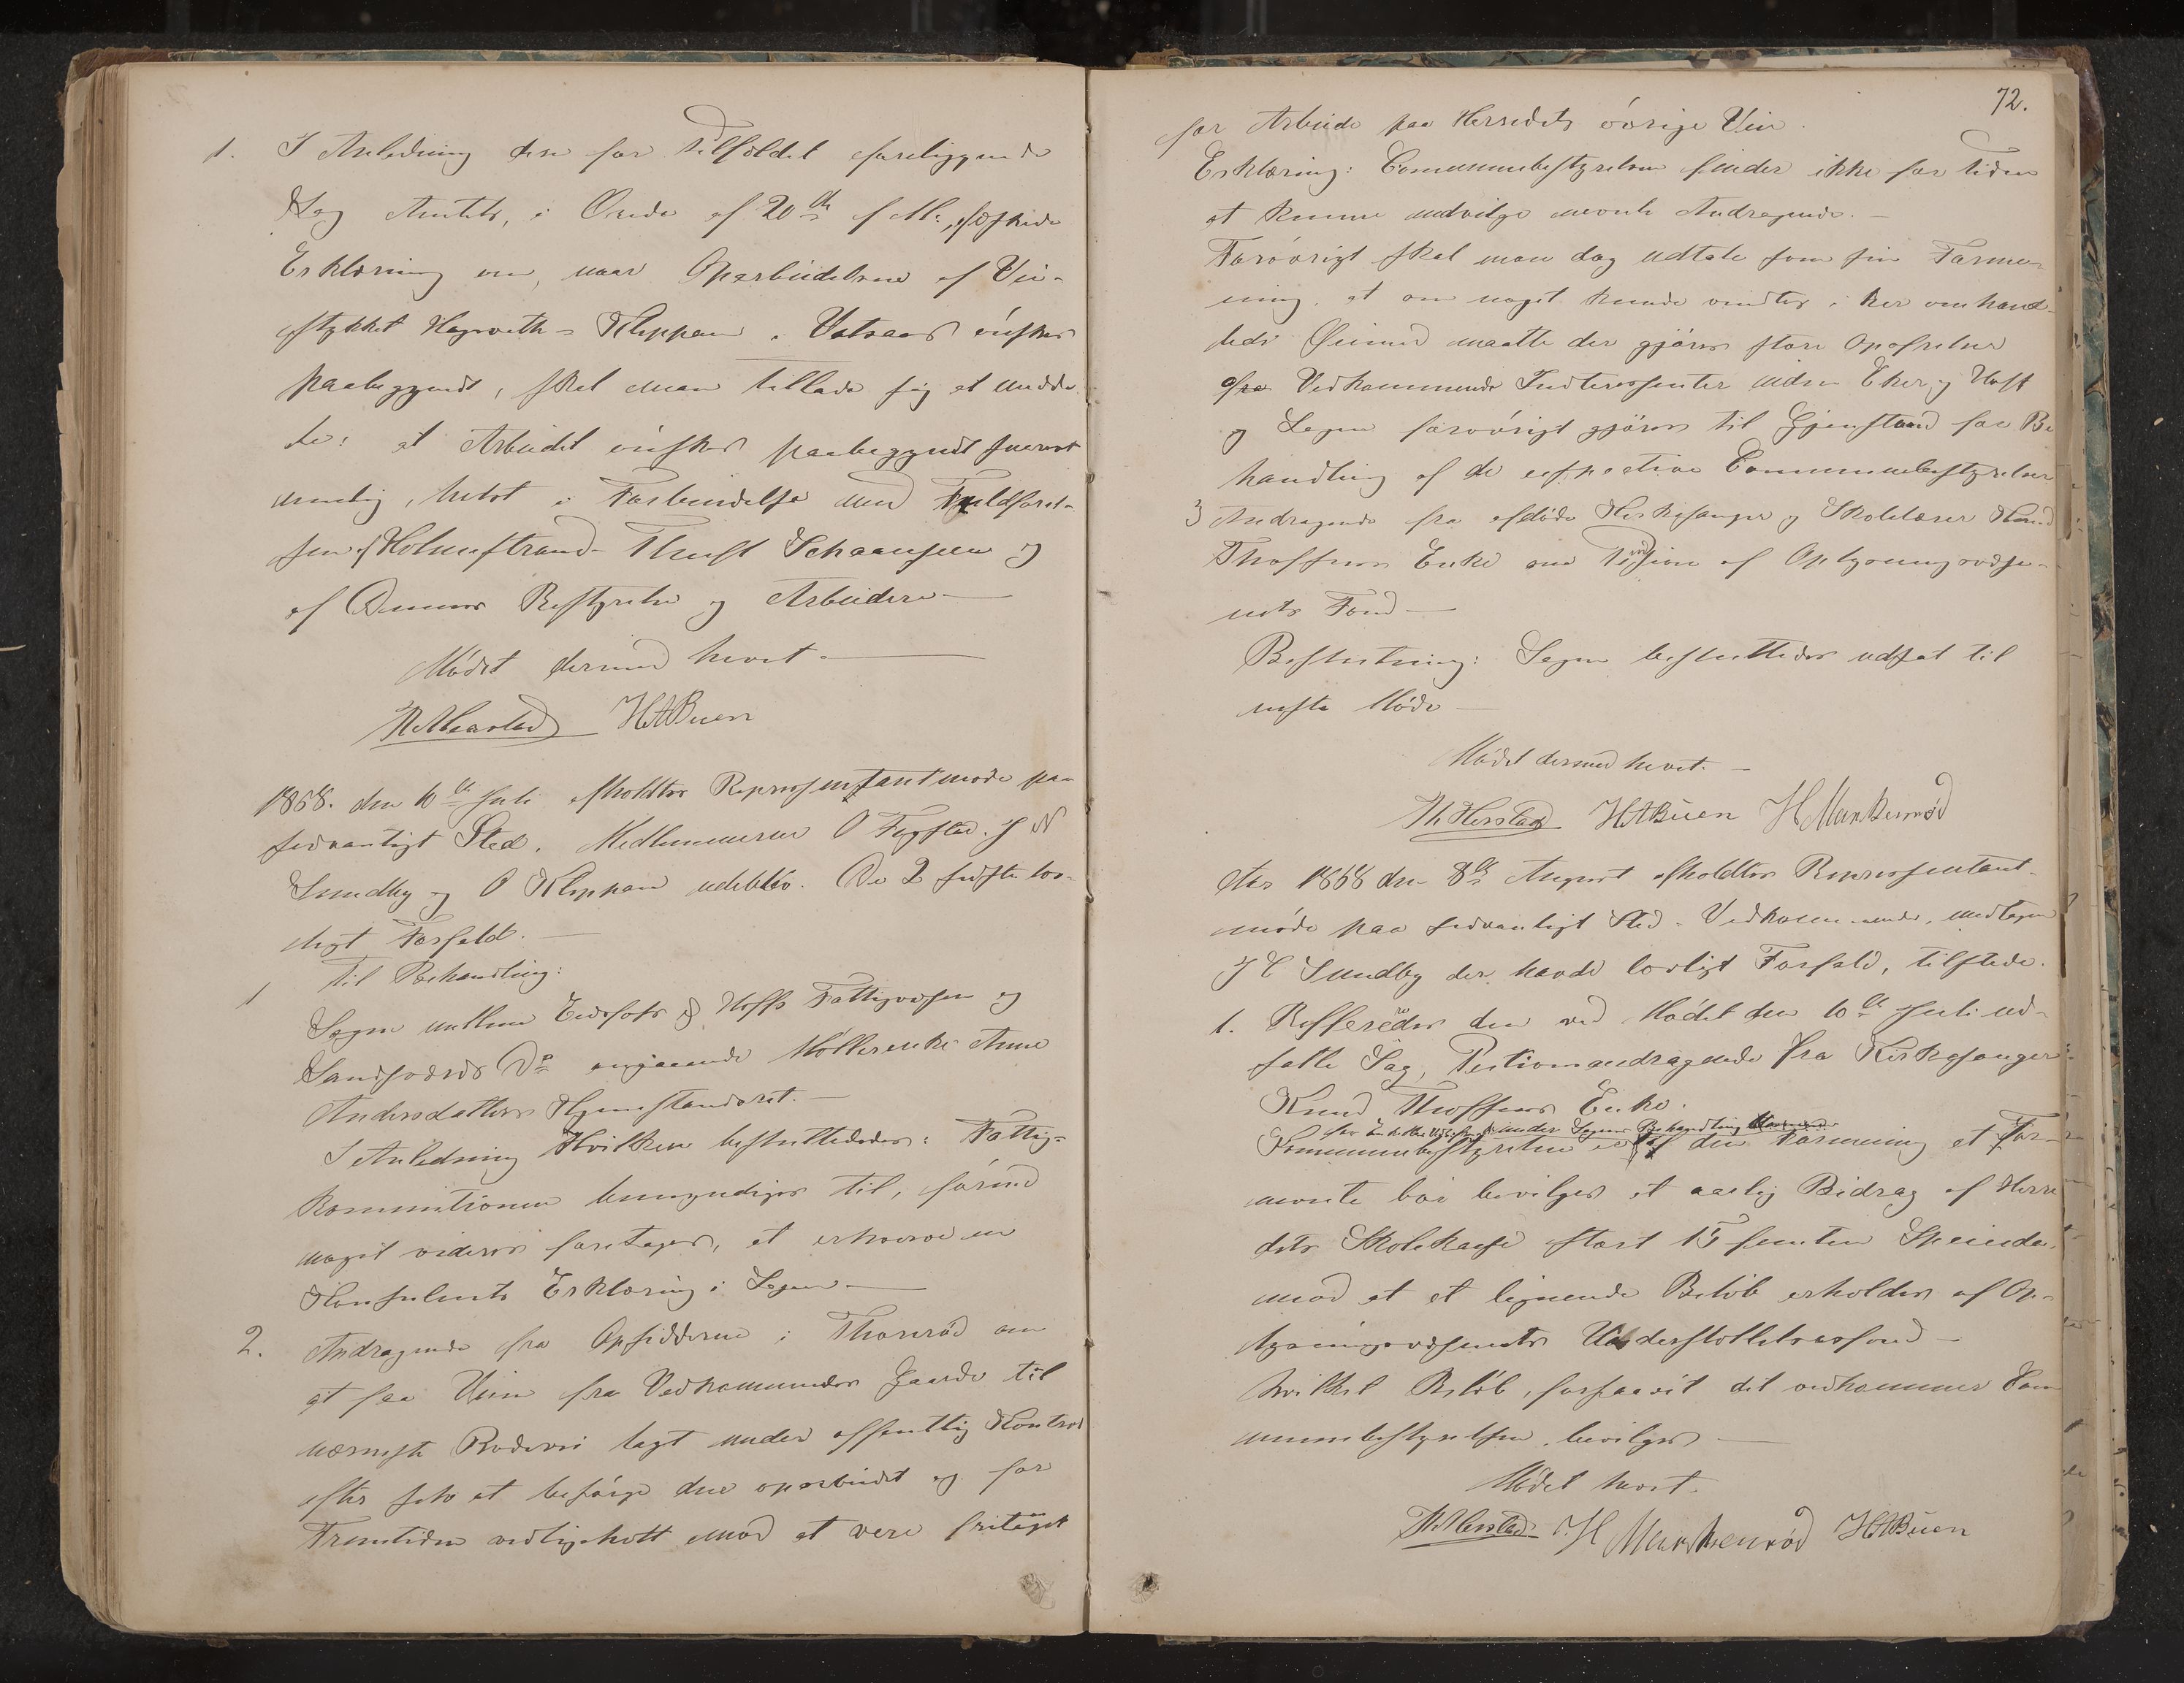 1. I Anledning den for Tilfældet foreliggende
Sag Amtets, i Orede af 20de f. M. æskede
Erklæring om, naar Oparbeidelsen af Vei-
stykket Hagneth - Kleppan i Vatsaas ønskes
paabegyndt, skal man tillade sig at medde-
le: at Arbeidet ønskes paabegyndt snarest
muelig, helst i Forbindelse med Fuldførel-
sen af Holmestrand - Thuft Schaansjeen og
af dennes Bestyrelse og Arbeidere
Mødet dermed hævet.
Th Herstad HABuen
1868. den 10de Juli afholdtes Representantmøde paa
sedvanligt Sted. Medlemmerne O Fegsted. J N
Sundby og O Kleppan udeblev. De 2 sidste lov-
ligt Forfald.
Til Behandling:
1 Sagen mellem Eidsfos & Hoffs Fattigvæsen og
Sandsværds Do angaaende Møllerenke Anne
Andersdatters Hjemstandsret.
I Anledning Hvilken besluttededes: Fattig-
kommitionen bemyndiges til, førend
noget videre foretages, at erhværve en
Konsulents Erklæring i Sagen
2. Andragende fra Opsidderne i Thorrød om
at faa Veien fra Vedkommendes Gaarde til
nærmeste Rodevei lagt under offentlig Kontrol
efter selv at besørge den oparbeidet og for
Fremtiden vedligeholt mod at være fritaget
72.
for Arbeide paa Herredets øvrige Veie.
Erklæring: Communebestyrelsen finder ikke for Tiden
at kunne indvilge nævnte Andragende.
Forøvrigt skal man dog udtale som sin Forme-
ning, at om noget kunde vindes i her omhand-
lede Øiemed maatte der gjøres store Opofrelser
fra Vedkommende Interessenter inden Eker og Hoff
og Sagen forøvrigt gjøres til Gjenstand for Be-
handling af de respective Communebestyrelser
3 Andragende fra afdøde Kirkesanger og Skolelærer Knud
Thoffsens Enke om Pension af Oplysningsvæse-
nets Fond
Beslutning: Sagen besluttedes udsat til
neste Møde
Mødet dermed hævet.
Th Herstad HABuen H Markenrød
Aar 1868 den 8de August afholdtes Representant-
møde paa sedvanligt Sted. Vedkommende, undtagen
J C Sundby der havde lovligt Forfald, tilstede.
1. Reffereredes den ved Mødet den 10de Juli ud-
satte Sag, Pentionsandragende fra Kirkesanger
Knud Thoffsens Enke.
under Sagens Behandling
Kommunebestyrelsen er af den Formening at For-
mente bør bevilges et aarlig Bidrag af Herre-
dets Skolekasse stort 15 femten Speciedr.
mod at et lignende Beløb erholdes af Op-
lysningsvæsenets Understøttelsesfond
hvilket Beløb, forsaavit det vedkommer Kom-
munebestyrelsen, bevilges
Mødet hævet.
Th Herstad H Markenrød HABuen